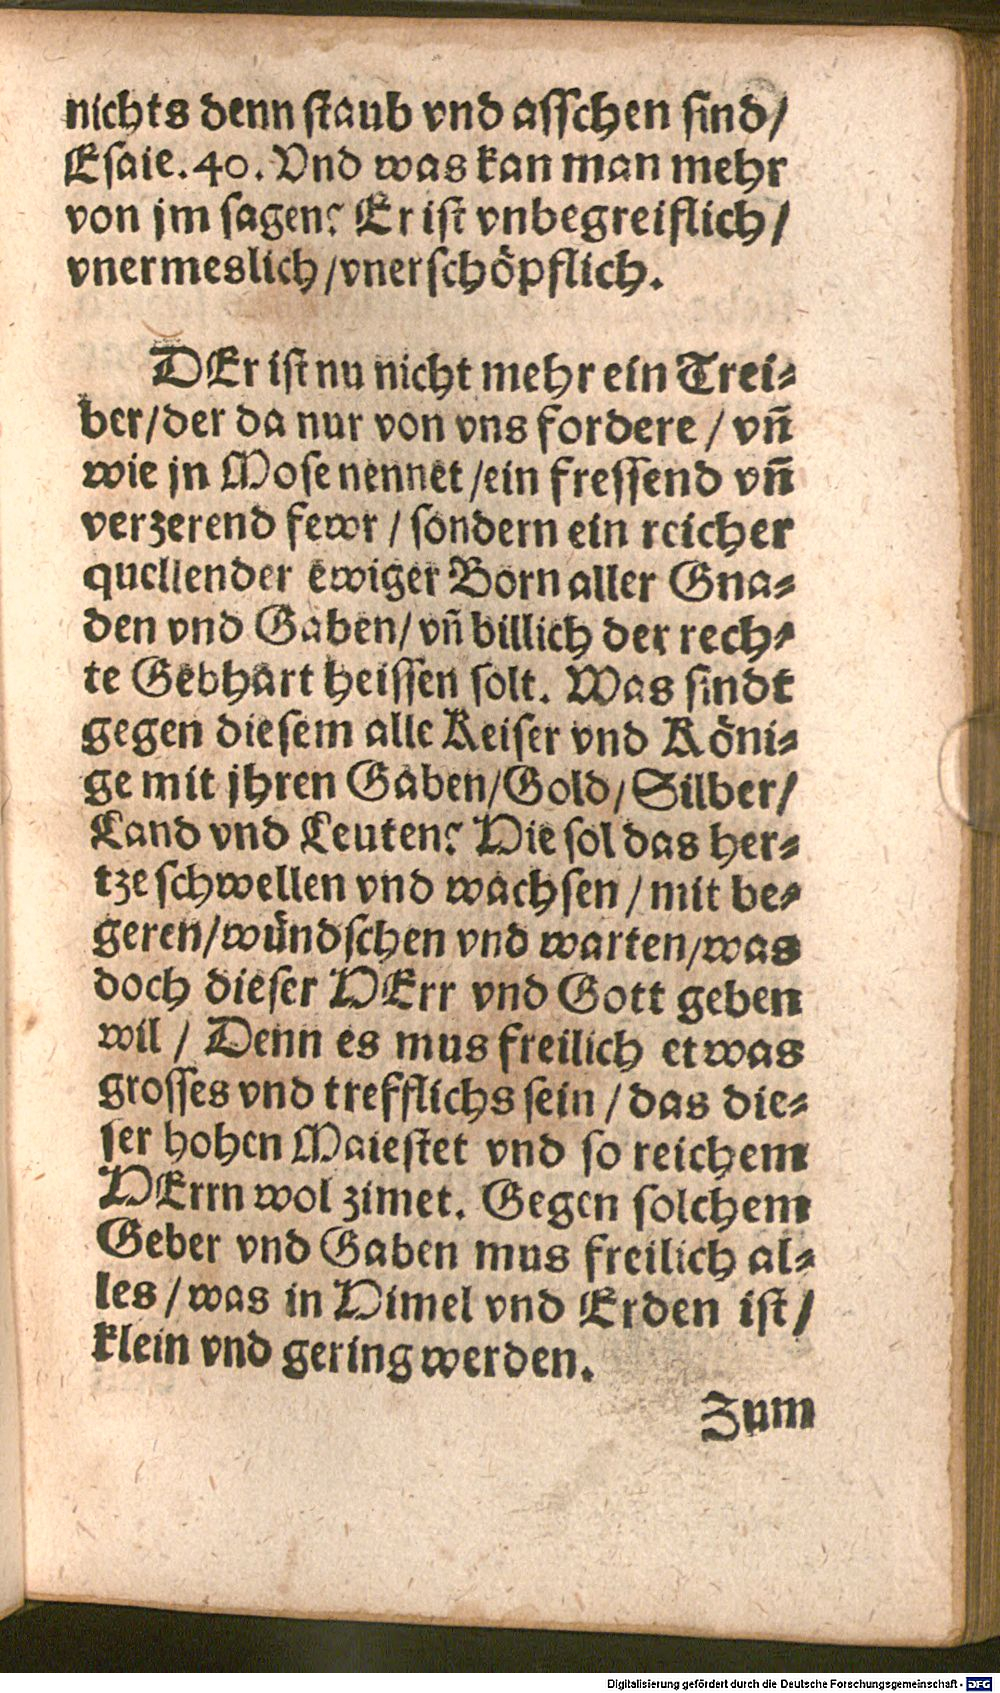 nichts denn staub vnd asschen sind/
Esaie. 40. Vnd was kan man mehr
von jm sagen? Er ist vnbegreiflich/
vnermeslich/vnerschöpflich.
DEr ist nu nicht mehr ein Trei⸗
ber/der da nur von vns fordere / vñ
wie jn Mose nennet /ein fressend vñ
verzerend fewr / sondern ein reicher
quellender ewiger Born aller Gna⸗
den vnd Gaben/ vñ billich der rech⸗
te Gebhart heissen solt. Was sindt
gegen diesem alle Keiser vnd Köni⸗
ge mit jhren Gaben/Gold/Silber/
Land vnd Leuten? Hie sol das her⸗
tze schwellen vnd wachsen / mit be⸗
geren/wündschen vnd warten/was
doch dieser HErr vnd Gott geben
wil / Denn es mus freilich etwas
grosses vnd trefflichs sein / das die⸗
ser hohen Maiestet vnd so reichem
HErrn wol zimet. Gegen solchem
Geber vnd Gaben mus freilich al⸗
les / was in Himel vnd Erden ist/
klein vnd gering werden.
Zum
Digitalisierung gefördert durch die Deutsche Forschungsgemeinschaft - DFG